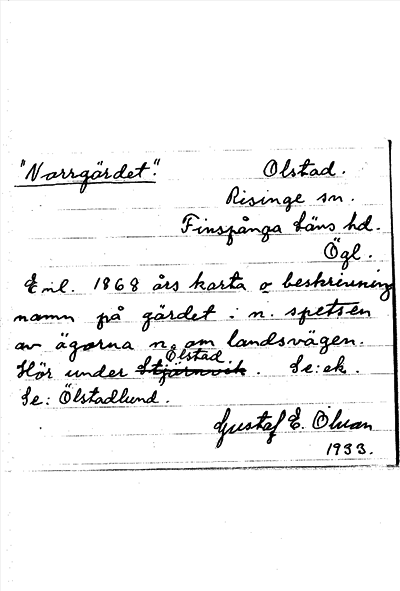 "Norrgärdet". Olstad.
Risinge sn.
Finspånga läns hd.
Ögl.
Enl. 1868 års karta o beskrivning
namn på gärdet i n. spetsen
av ägorna n. om landsvägen.
Hör under Stjärnvik Olstad. Se: ek.
Se: Ölstadlund.
Gustaf E. Ölvan
1933.